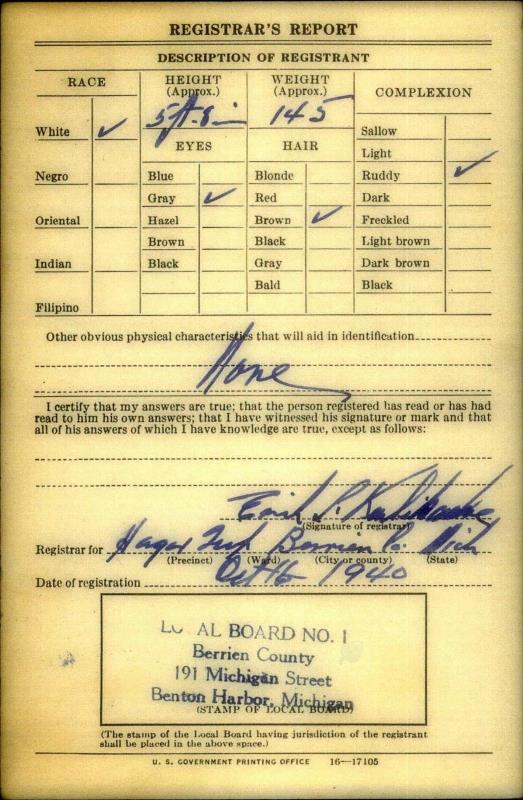 REGISTRAR'S REPORT
DESCRIPTION OF REGISTRANT
RACE
HEIGHT
(Approx.)
WEIGHT
(Approx.)
COMPLEXION
5 ft. 8 in
145
White ✓
EYES
HAIR
Sallow
Light
Negro
Blue
Blonde
Ruddy ✓
Gray ✓
Red
Dark
Oriental
Hazel
Brown ✓
Freckled
Brown
Black
Light brown
Indian
Black
Gray
Dark brown
Bald
Black
Filipino
Other obvious physical characteristics that will aid in identification
None
I certify that my answers are true; that the person registered has read or has had
read to him his own answers; that I have witnessed his signature or mark and that
all of his answers of which I have knowledge are true, except as follows:
(Signature of registrar)
Registrar for Hagar Twp Berrien Co. Mich
(Precinct) (Ward) (City or county) (State)
Date of registration Oct 16 1940
LOCAL BOARD NO. 1
Berrien County
191 Michigan Street
Benton Harbor, Michigan
(STAMP OF LOCAL BOARD)
(The stamp of the Local Board having jurisdiction of the registrant
shall be placed in the above space.)
U. S. GOVERNMENT PRINTING OFFICE 16—17105